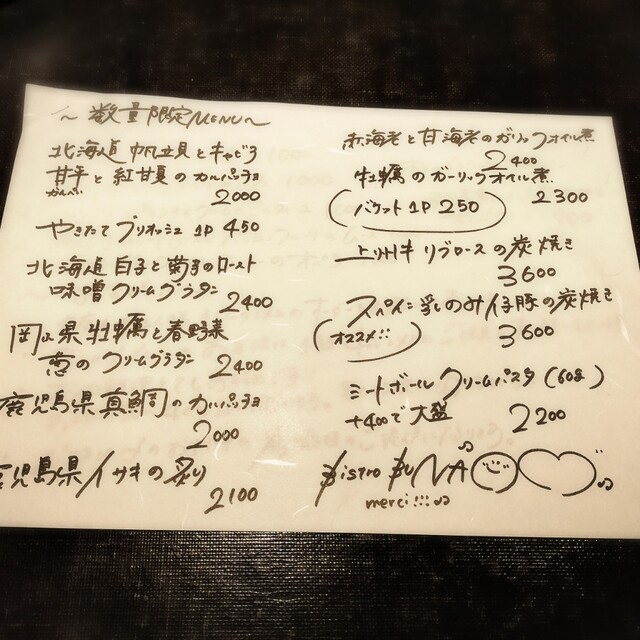 ～数量限定MENU～
北海道帆立貝とキャビア
甘平と紅甘夏のカルパッチョ
かんぺい
2000
やきたてブリオッシュ 1P 450
北海道白子と菊子のロースト
味噌クリームグラタン
2400
岡山県牡蠣と春野菜
葱のクリームグラタン
2400
鹿児島県真鯛のカルパッチョ
2000
鹿児島県イサキの炙り
2100
赤海老と甘海老のガーリックオイル煮
2400
牡蠣のガーリックオイル煮
2300
(バケット1P 250)
上州牛リブロースの炭焼き
3600
スペイン乳のみ仔豚の炭焼き
(オススメ!!)
3600
ミートボールクリームパスタ(60g)
+400で大盛
2200
Bistro NUNA
merci!!!